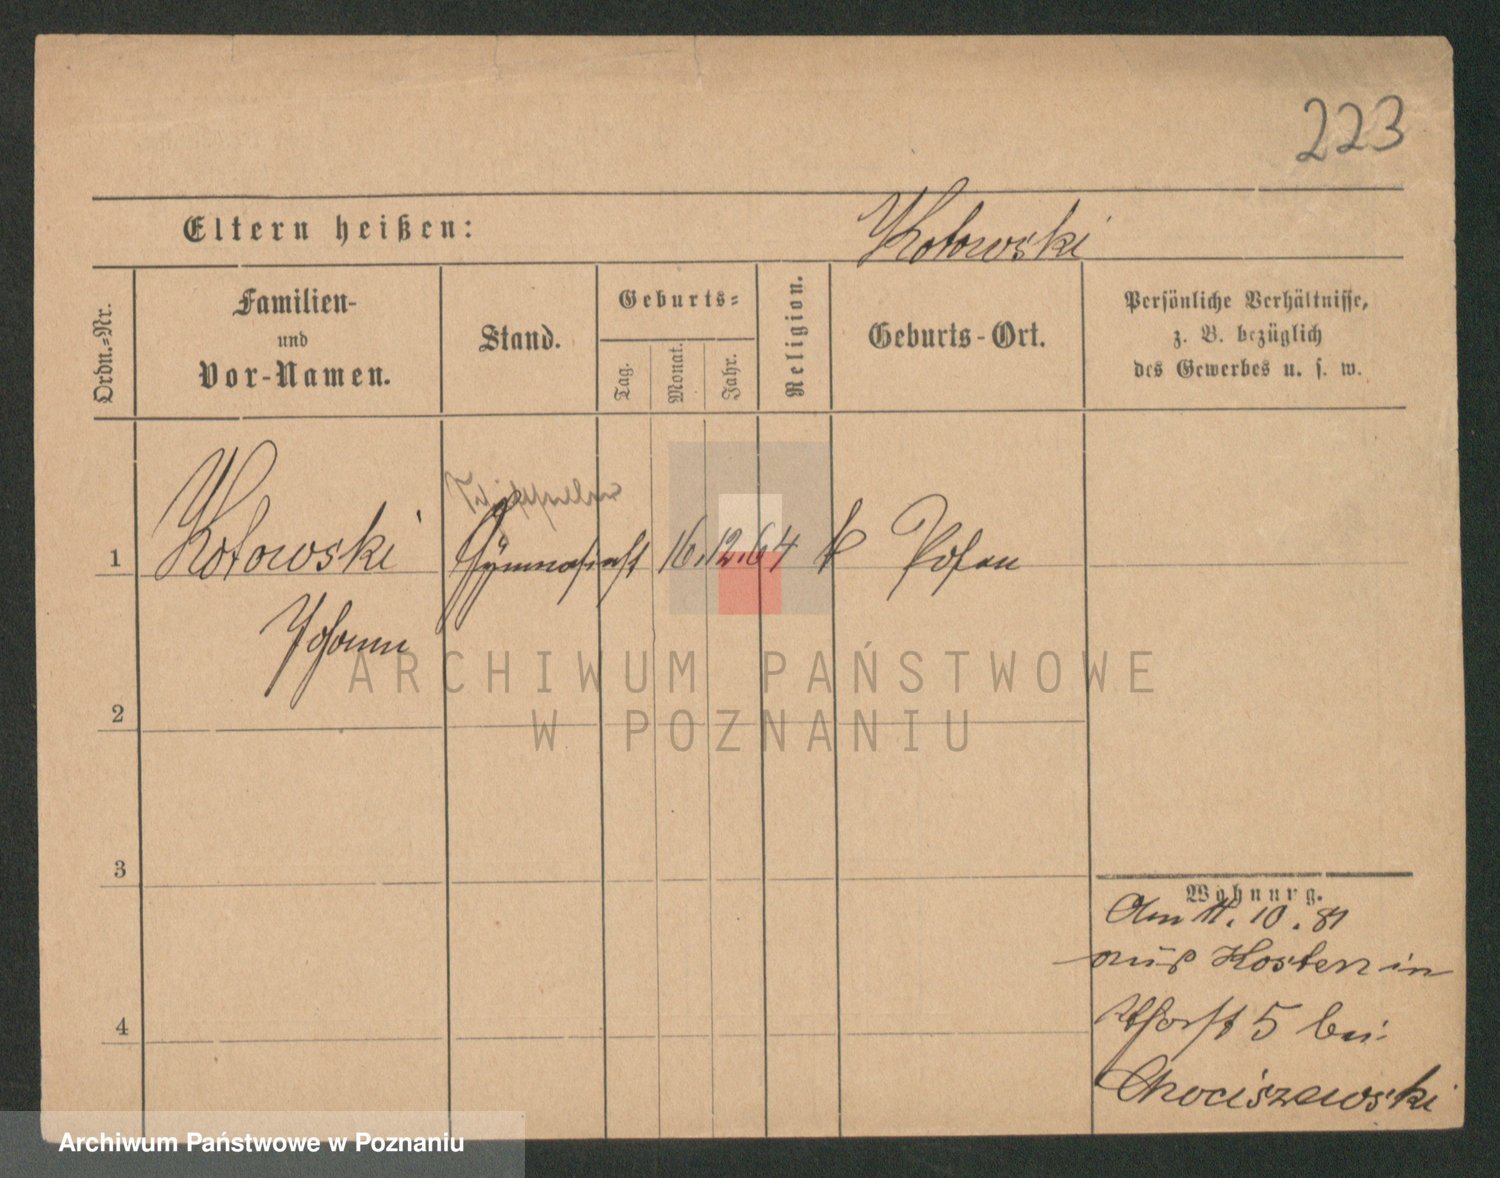 223
Eltern heißen:
Kotowski
Ordn.-Nr.
Familien-
und
Vor-Namen.
Stand.
Geburts-
Tag.
Monat.
Jahr.
Religion.
Geburts-Ort.
Persönliche Verhältnisse,
z. B. bezüglich
des Gewerbes u. s. w.
1 Kotowski Gymnasiast 16. 12. 64 k Posen
Johann
2
3
4
Wohnung.
Am 11. 10. 81
aus Kosten in
5 bei
Chociszewski
ARCHIWUM PAŃSTWOWE
W POZNANIU
Archiwum Państwowe w Poznaniu